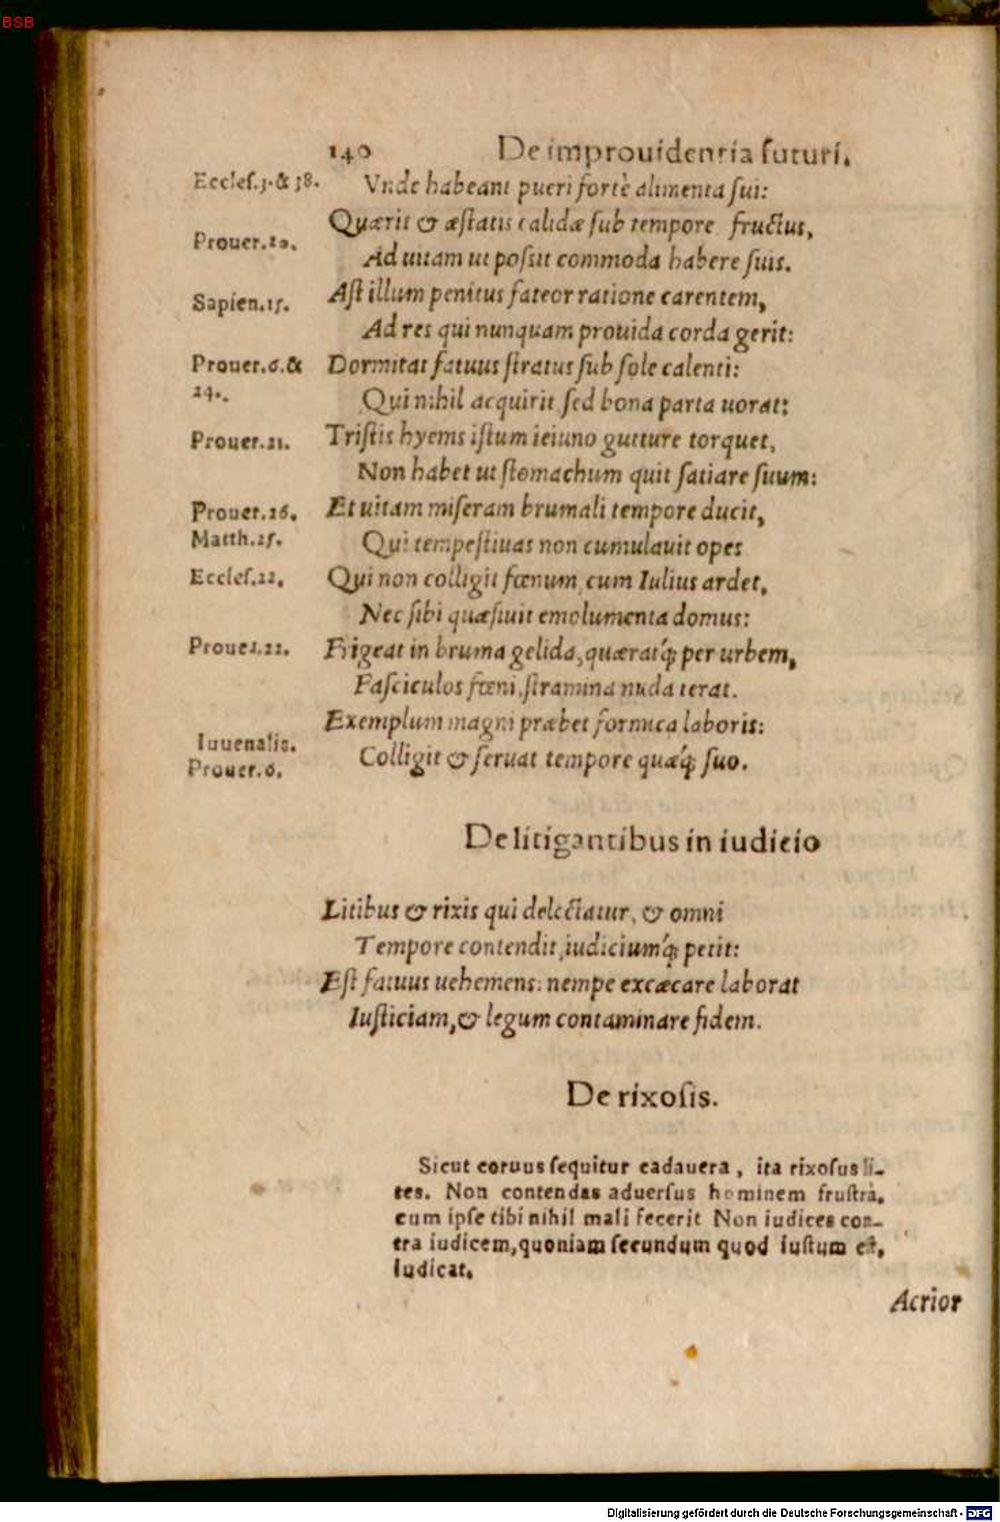 BSB
140 De improuidentia futuri.
Eccleſ.3.&38. Vnde habeant pueri fortè alimenta ſui:
Quærit & æſtatis calidæ ſub tempore fructus,
Prouer.20.
Ad uitam ut poſsit commoda habere ſuis.
Sapien.15. Aſt illum penitus fateor ratione carentem,
Ad res qui nunquam prouida corda gerit:
Prouer.6.& Dormitat fatuus ſtratus ſub ſole calenti:
24.. Qui nihil acquirit ſed bona parta uorat:
Prouer.21. Triſtis hyems iſtum ieiuno gutture torquet,
Non habet ut ſtomachum quit ſatiare ſuum:
Prouer.26. Et uitam miſeram brumali tempore ducit,
Matth.25. Qui tempeſtiuas non cumulauit opes
Eccleſ.22. Qui non colligit fœnum, cum Iulius ardet,
Nec ſibi quæſiuit emolumenta domus:
Prouer.22. Frigeat in bruma gelida, quæratq́; per urbem,
Faſciculos fœni, ſtramina nuda terat.
Exemplum magni præbet formica laboris:
Iuuenalis.
Colligit & ſeruat tempore quæq́; ſuo.
Prouer.6.
De litigantibus in iudicio
Litibus & rixis qui delectatur, & omni
Tempore contendit, iudiciumq́; petit:
Eſt fatuus uehemens: nempe excæcare laborat
Iuſticiam, & legum contaminare fidem.
De rixoſis.
Sicut coruus ſequitur cadauera, ita rixoſus li-
tes. Non contendas aduerſus hominem fruſtrà,
cum ipſe tibi nihil mali fecerit Non iudices con-
tra iudicem, quoniam ſecundum quod iuſtum eſt,
iudicat.
Acrior
Digitalisierung gefördert durch die Deutsche Forschungsgemeinschaft - DFG